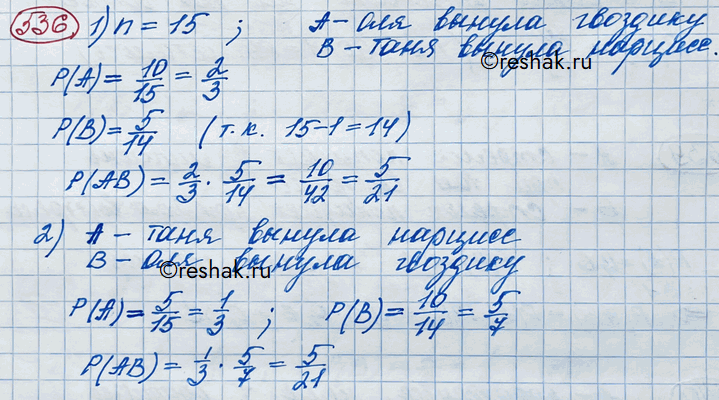 536 1) n = 15 ; A – Оля вынула гвоздику
B – Таня вынула нарцисс.
©reshak.ru
P(A) = 10/15 = 2/3
P(B) = 5/14 (т.к. 15–1=14)
P(AB) = 2/3 · 5/14 = 10/42 = 5/21
2) A – Таня вынула нарцисс
B – Оля вынула гвоздику
©reshak.ru
P(A) = 5/15 = 1/3 ; P(B) = 10/14 = 5/7
P(AB) = 1/3 · 5/7 = 5/21